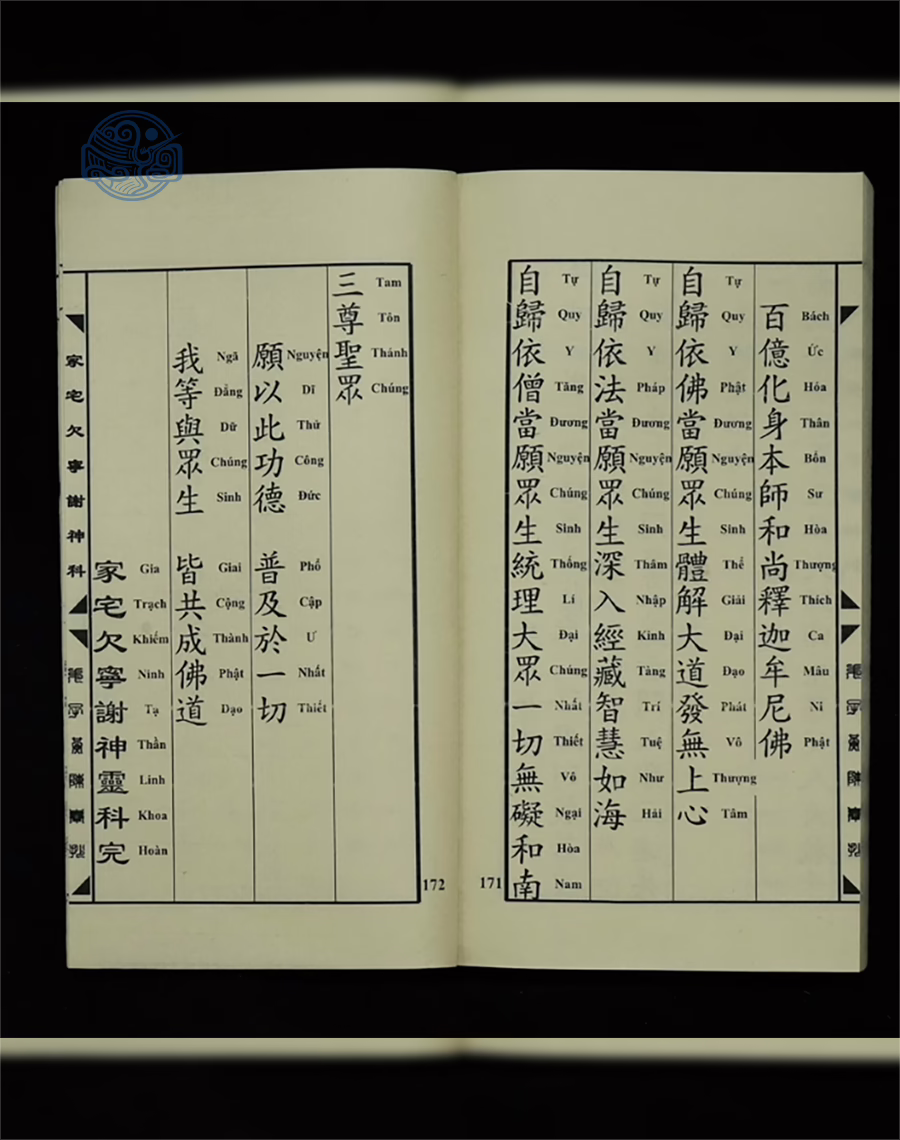 百億化身本師和尚釋迦牟尼佛
Bách Ức Hóa Thân Bổn Sư Hòa Thượng Thích Ca Mâu Ni Phật
自歸依佛當願眾生體解大道發無上心
Tự Quy Y Phật Đương Nguyện Chúng Sinh Thể Giải Đại Đạo Phát Vô Thượng Tâm
自歸依法當願眾生深入經藏智慧如海
Tự Quy Y Pháp Đương Nguyện Chúng Sinh Thâm Nhập Kinh Tàng Trí Tuệ Như Hải
自歸依僧當願眾生統理大眾一切無礙和南
Tự Quy Y Tăng Đương Nguyện Chúng Sinh Thống Lí Đại Chúng Nhất Thiết Vô Ngại Hòa Nam
171
三尊聖眾
Tam Tôn Thánh Chúng
願以此功德 普及於一切
Nguyện Dĩ Thử Công Đức Phổ Cập Ư Nhất Thiết
我等與眾生 皆共成佛道
Ngã Đẳng Dữ Chúng Sinh Giai Cộng Thành Phật Đạo
家宅欠寧謝神靈科完
Gia Trạch Khiếm Ninh Tạ Thần Linh Khoa Hoàn
家宅欠寧謝神科
172